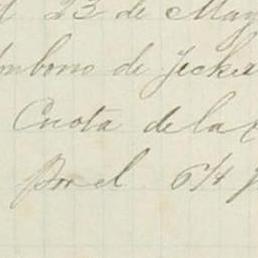 23 de May
mbono de Jecker
Cuota de la
Por el 6¼